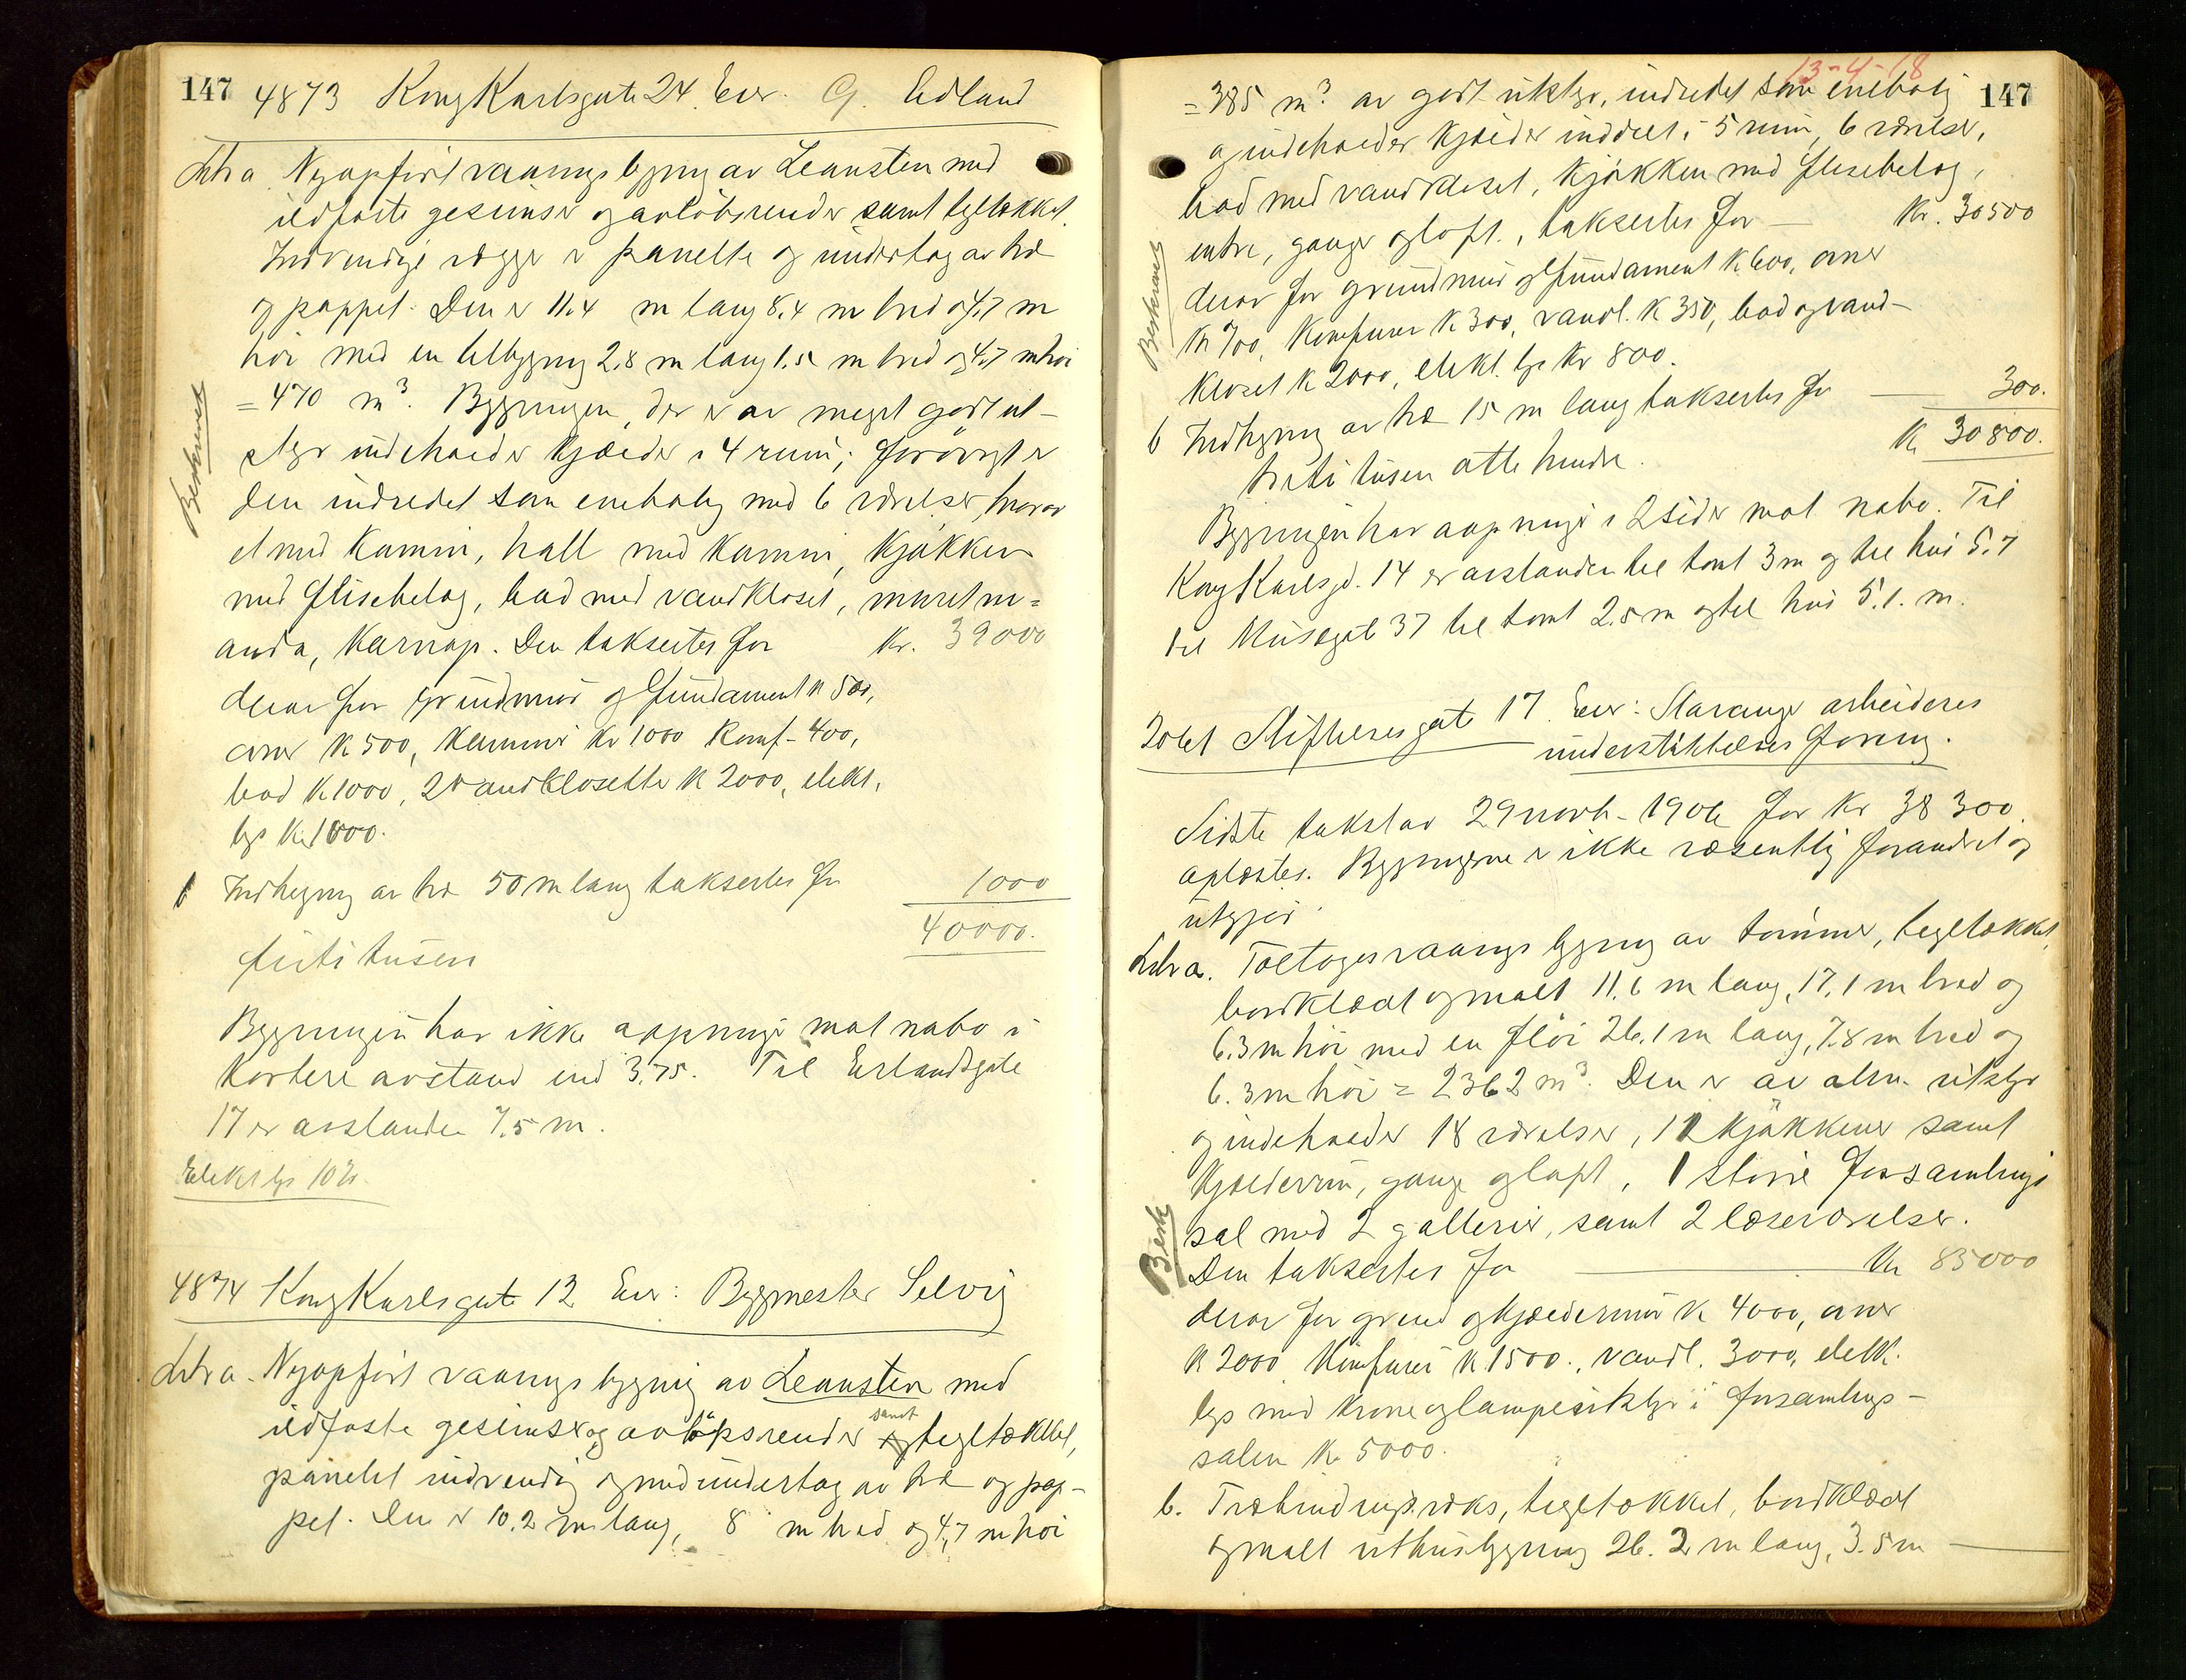 147 4873 Kong Karlsgate 24. Eier. G. Edland
Litr a. Nyopført vaaningsbygning av Leansten med
ildfaste gesimser og avløbsrender samt tegltækket.
Indvendige vægger er panelte og undertag av træ
og pappet. Den er 11.4 m lang 8.4 m bred og 4.7 m
høi med en tilbygning 2.8 m lang 1.5 m bred og 4.7 m høi
= 470 m³. Bygningen, der er av meget godt ut-
styr indeholder kjælder i 4 rum; forøvrigt er
den indredet som enebolig med 6 værelser, hvorav
et med kamin, hall med kamin, kjøkken
med flisebelæg, bad med vandkloset, muret ver-
anda, karnap. Den taksertes for Kr. 39000
derav for grundmur og fundament k 500,
ovner k 500, kaminer kr 1000 komf- 400,
bad k 1000, 2 vandklosetter k 2000, elekt.
lys kr 1000.
b Indhegning av træ 50 m lang taksertes for 1000
40000.
firti tusen
Bygningen har ikke aapninger mot nabo i
kortere avstand end 3.75. Til Erlandsgate
17 er avstanden 7.5 m.
Elekt lys 10
Beskrevet
4874 Kong Karlsgate 12 Eier: Bygmester Selvig
Litr a. Nyopført vaaningsbygning av Leansten med
ildfaste gesimser og avløpsrender samt tegltækket,
panelet indvendig og med undertag av træ og pap-
pet. Den er 10.2 m lang, 8 m bred og 4.7 m høi
13-4-18
147
= 385 m³ av godt utstyr, indredet som enebolig
og indeholder kjælder inddelt i 5 rum, 6 værelser,
bad med vandkloset, kjøkken med flisebelæg,
entre, ganger og loft., taksertes for — Kr. 30500
derav for grundmur og fundament k 600, ovner
kr 700, komfurer k 300, vandl. k 350, bad og vand-
kloset k 2000, elekt. lys kr 800.
Beskrevet
b Indhegning av træ 15 m lang taksertes for — 300.
kr 30800.
treti tusen otte hundre.
Bygningen har aapninger i 2 sider mot nabo. Til
Kong Karlsgt. 14 er avstanden til tomt 3 m og til hus 5.7
til Musegt 37 til tomt 2.5 m og til hus 5.1. m.
2061 Stiftelsesgate 17. Eier: Stavanger arbeideres
understøttelses forening.
Sidste takst av 29 novb- 1906 for kr 38 300.
oplæstes. Bygningerne er ikke væsentlig forandret og
utgjør:
Litr a. Toetages vaaningsbygning av tømmer, tegltækket,
bordklædt og malt 11.6 m lang, 17.1 m bred og
6.3 m høi med en fløi 26.1 m lang, 7.8 m bred og
6.3 m høi = 2362 m³. Den er av alm. utstyr
og indeholder 18 værelser, 12 kjøkkener samt
kjælderrum, gange og loft, 1 større forsamlings
sal med 2 gallerier, samt 2 læseværelser.
Besk
Den taksertes for — Kr 85000
derav for grund og kjældermur k 4000, ovner
k 2000 komfurer k 1500., vandl. 3000, elekt.
lys med krone og lampeutstyr i forsamlings-
salen k 5000.
b. Træbindingsverks, tegltækket, bordklædt
og malt uthusbygning 26.2 m lang, 3.5 m —